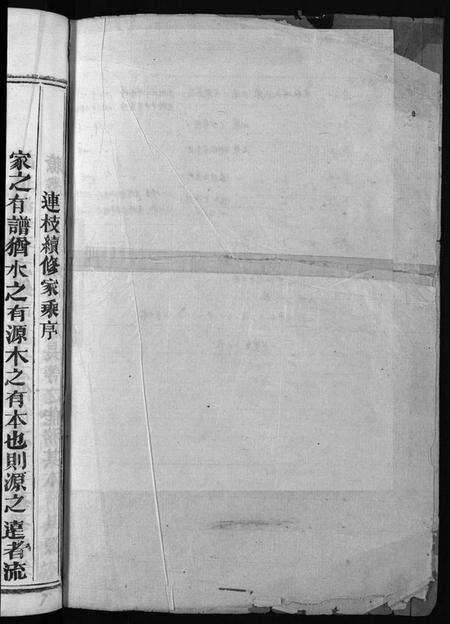 連枝續修家乘序
家之有譜猶水之有源木之有本也則源之遠者流